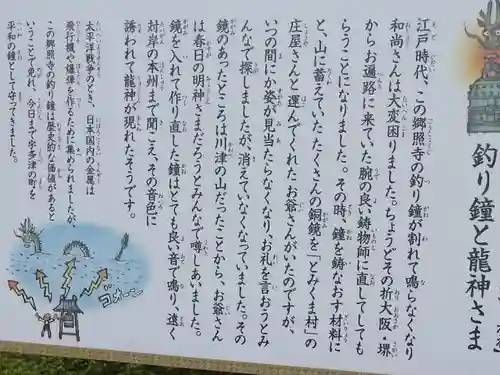 釣り鐘と龍神さま
江戸時代、この郷照寺の釣り鐘が割れて鳴らなくなり
和尚さんは大変困りました。ちょうどその折大阪・堺
からお遍路に来ていた腕の良い鋳物師に直してしても
らうことになりました。その時、鐘を鋳なおす材料に
と、山に蓄えていたたくさんの銅鏡を「とみくま村」の
庄屋さんと運んでくれたお爺さんがいたのですが、
いつの間にか姿が見当たらなくなり、お礼を言おうとみ
んなで探しましたが、消えていなくなっていました。その
鏡のあったところは川津の山だったことから、お爺さん
は春日の明神さまだろうとみんなで噂しあいました。
鏡を入れて作り直した鐘はとても良い音で鳴り、遠く
対岸の本州まで聞こえ、その音色に
誘われて龍神が現れたそうです。
太平洋戦争のとき、日本国内の金属は
飛行機や爆弾を作るために集められましたが、
この郷照寺の釣り鐘は歴史的な価値があると
いうことで免れ、今日まで宇多津の町を
平和の鐘として守ってきました。
ゴォーン